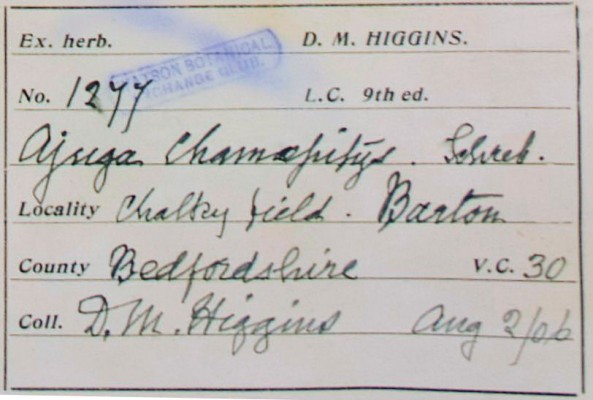 Ex. herb. D. M. HIGGINS.
WATSON BOTANICAL
EXCHANGE CLUB.
No. 1277 L.C. 9th ed.
Ajuga Chamæpitys. Schreb.
Locality Chalky field. Barton
County Bedfordshire V.C. 30
Coll. D. M. Higgins Aug 2/06